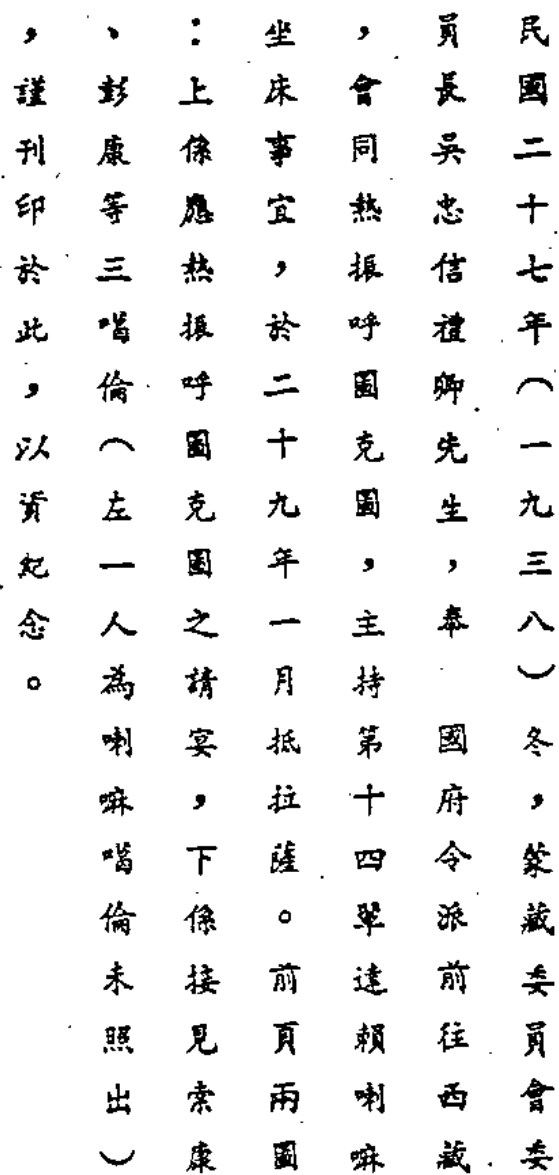 民國二十七年（一九三八）冬，蒙藏委員會委
員長吳忠信禮卿先生，奉　國府令派前往西藏
，會同熱振呼圖克圖，主持第十四輩達賴喇嘛
坐床事宜，於二十九年一月抵拉薩。前頁兩圖
：上係應熱振呼圖克圖之請宴，下係接見索康
、彭康等三噶倫（左一人為喇嘛噶倫未照出）
，謹刊印於此，以資紀念。